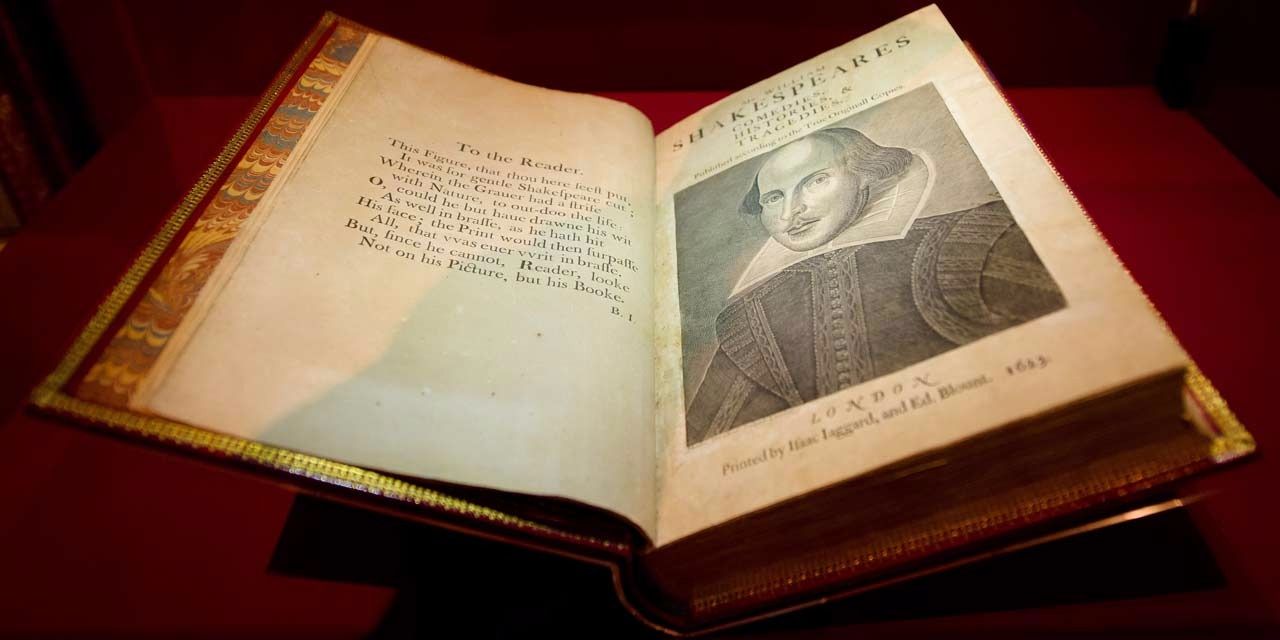 To the Reader.
This Figure, that thou here ſeeſt put,
It was for gentle Shakeſpeare cut;
Wherein the Grauer had a ſtrife
with Nature, to out-doo the life:
O, could he but haue drawne his wit
As well in braſſe, as he hath hit
His face; the Print would then ſurpaſſe
All, that vvas euer vvrit in braſſe.
But, ſince he cannot, Reader, looke
Not on his Picture, but his Booke.
B. I.
Mr. WILLIAM
SHAKESPEARES
COMEDIES,
HISTORIES, &
TRAGEDIES.
Published according to the True Originall Copies.
LONDON
Printed by Iſaac Iaggard, and Ed. Blount. 1623.